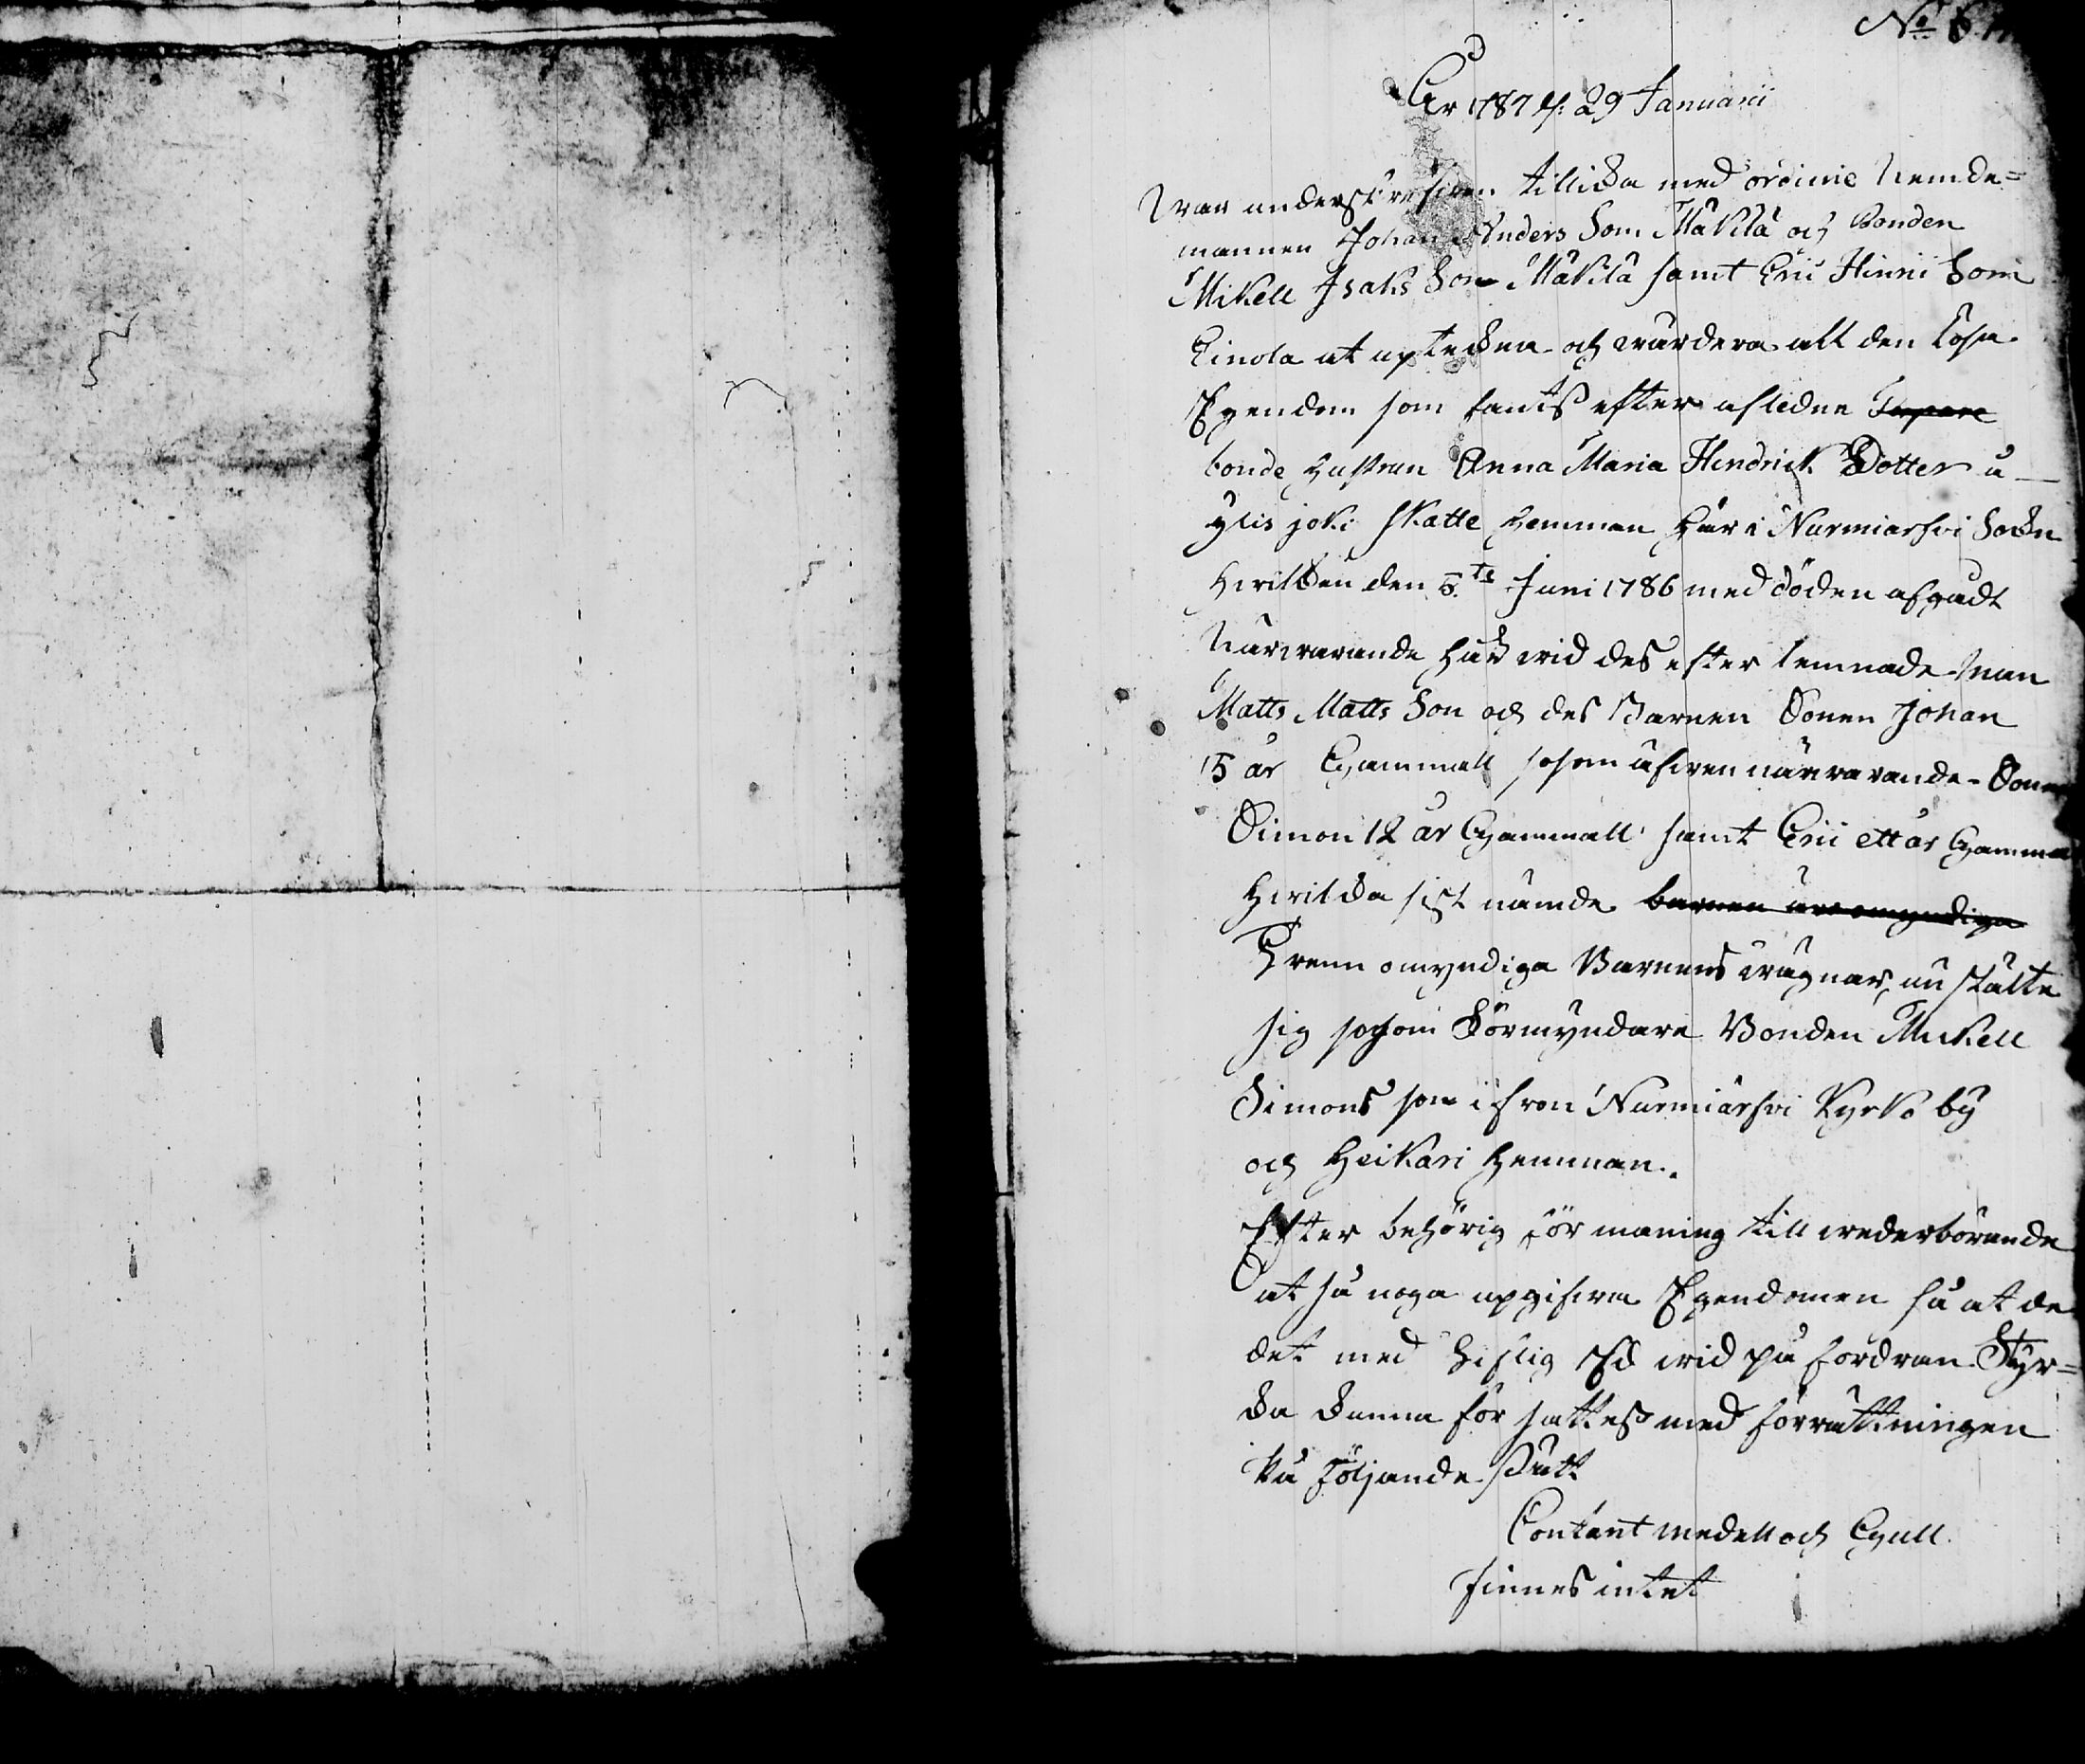 No 6
År 1787 d. 29 Januarii
War underskrefven tillika med ordinie Nemde=
mannen Johan Anders Son Mäkilä och Bonden
Mikell Isaks Son Mäkilä samt Eric Hinric Son
Einola at uptekna och wärdera all den Lösa
Egendom som fants efter afledne Torpare
bonde hustrun Anna Maria Hendrick Dotter å
ylis joki Skatte hemman här i Nurmiärfvi Sokn
hvilken den 5.te Juni 1786 med döden afgådt
Närvarande här wid des efter lemnade Man
Matts Matts Son och des Barnen Sonen Johan
15 år Gammall såsom äfven närvarande Sonen
Simon 12 år Gammall samt Eric ett år Gammal
hvilka sist nämde barnen äro omyndiga
Trenn omyndiga Barnens wägnar, in stälte
sig såsom Förmyndare Bonden Mickell
Simons son ifron Nurmiärfvi Kyrko by
och Heikari hemman.
Efter behörig för maning till wederbörande
at så noga upgifva Egendomen så at de
det med Liflig Ed wid på fordran Styr=
ka kunna för sattes med förrättningen
På Följande Sätt
Contant medell och Gull
finnes intet